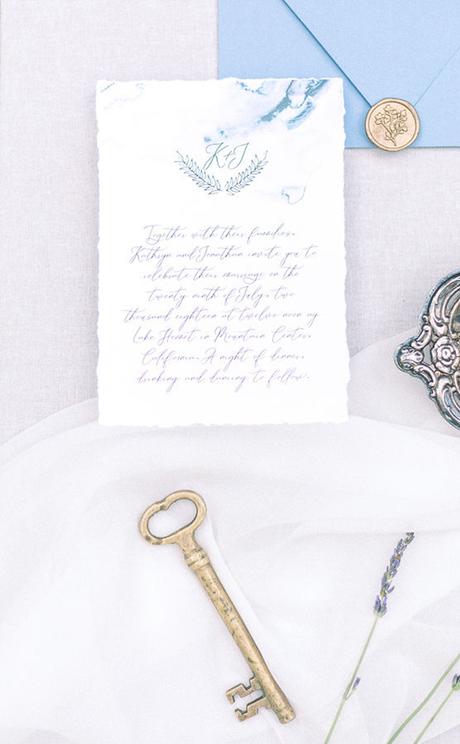 K+J
Together with their families,
Kathryn and Jonathan invite you to
celebrate their marriage on the
twenty ninth of July, two
thousand eighteen at twelve noon
Lake Hemet in Mountain Center,
California. A night of dinner,
drinking and dancing to follow.